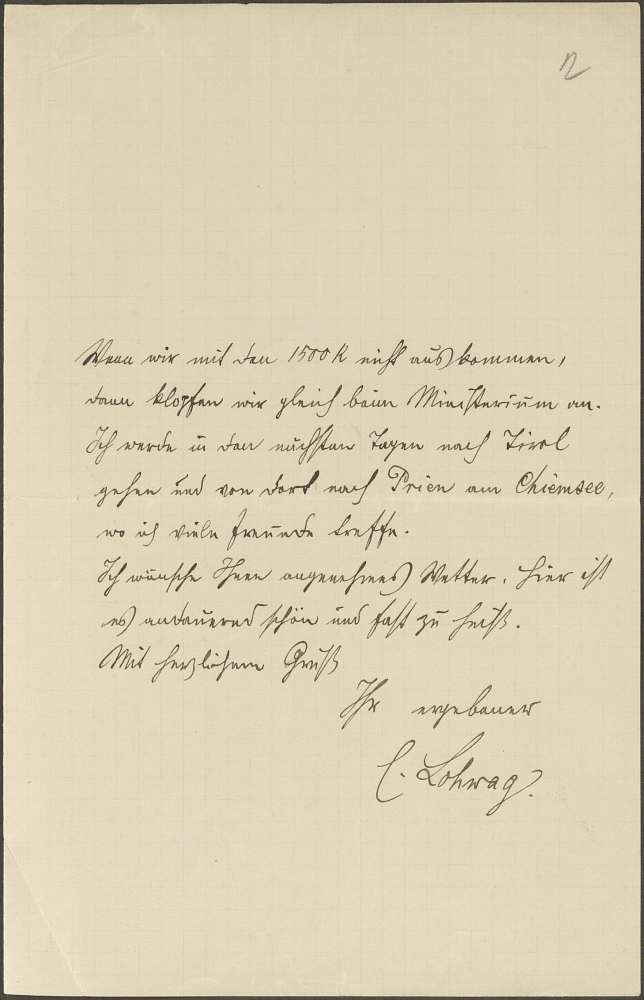 12
Wenn wir mit den 1500 K nicht auskommen,
dann klopfen wir gleich beim Ministerium an.
Ich werde in den nächsten Tagen nach Tirol
gehen und von dort nach Prien am Chiemsee,
wo ich viele Freunde treffe.
Ich wünsche Ihnen angenehmes Wetter. Hier ist
es andauernd schön und fast zu heiß.
Mit herzlichem Gruß
Ihr ergebener
E. Lohwag.